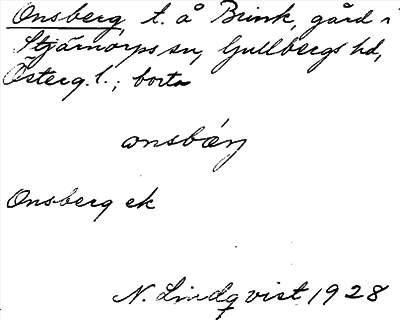 Onsberg, t. å Brink, gård i
Stjärnorps sn, Gullbergs hd,
Österg. l.; borta
onsbærj
Onsberg ek
N. Lindqvist 1928